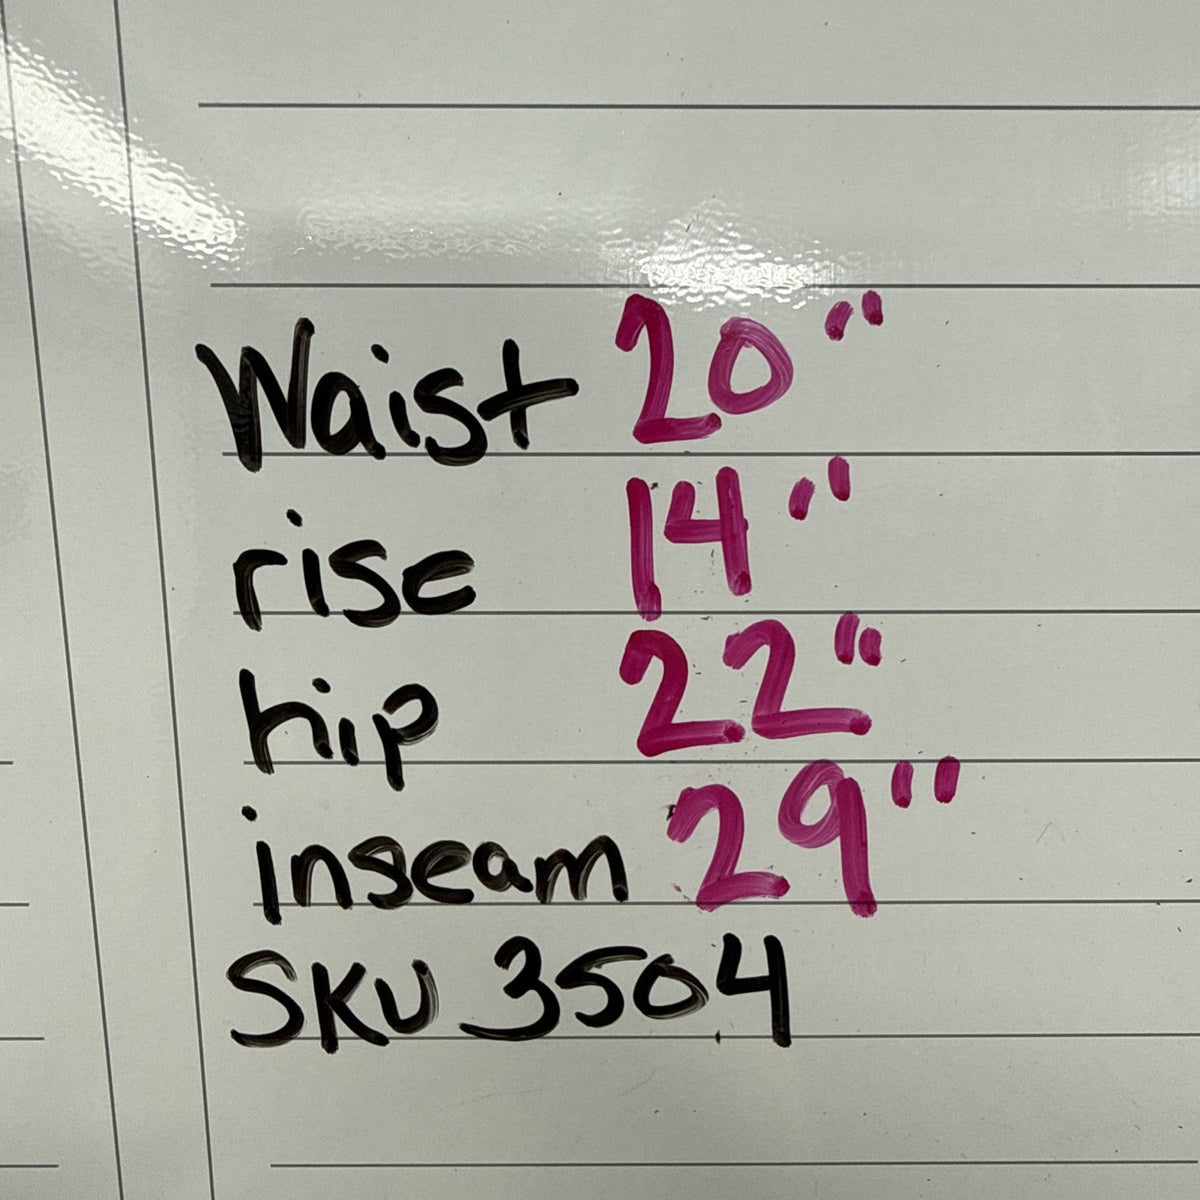 Waist 20"
rise 14"
hip 22"
inseam 29"
SKU 3504